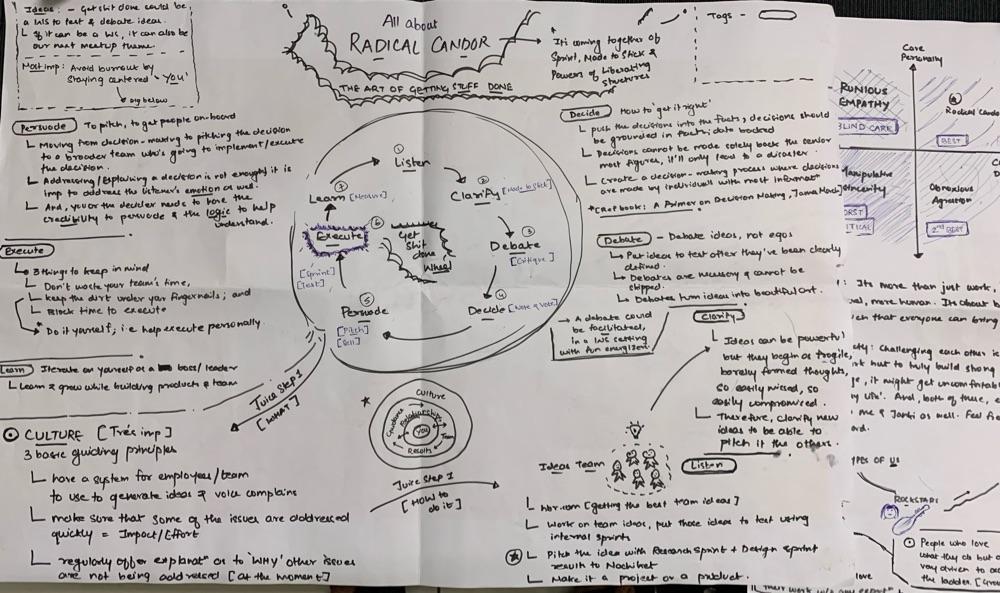 Ideas: - Get shit done could be
a WS to test & debate ideas.
If it can be a WS, it can also be
our next meetup theme
Most imp: Avoid burnout by
staying centered - 'YOU'
Dig below
All about
RADICAL CANDOR
THE ART OF GETTING STUFF DONE
* It's coming together of
Sprint, Made to Stick &
Powers of Liberating
Structures
Tags -
Persuade To pitch, to get people on-board
Moving from decision-making to pitching the decision
to a broader team who's going to implement/execute
the decision.
Addressing/Explaining a decision is not enough; it is
imp to address the listener's emotion as well.
And, you or the decider needs to have the
credibility to persuade & the logic to help
understand.
Execute
3 things to keep in mind
Don't waste your team's time,
Keep the dirt under your fingernails; and
Block time to execute
Do it yourself; i.e help execute personally
Learn Iterate on yourself as a boss/leader
Learn & grow while building products & team
① Listen
② Clarify [Made to Stick]
③ Debate
[Critique]
④ Decide [Note & Vote]
⑤ Persuade
[Pitch]
[Sell]
⑥ Execute
[Sprint]
[Test]
⑦ Learn [Measure]
Get
Shit
done
Wheel
Juice Step 1
[WHAT]
Decide How to 'get it right'
push the decisions into the facts; decisions should
be grounded in facts; data backed
Decisions cannot be made solely back the senior
most figures, it'll only lead to a disaster.
create a decision-making process where decisions
are made by individuals with most informatn
* [Ref book: A Primer on Decision Making, James March]
Debate - Debate ideas, not egos
Put ideas to test after they've been clearly
defined.
Debates are necessary & cannot be
skipped.
Debates turn ideas into beautiful art.
→ A debate could
be facilitated,
in a WS setting
with fun energizers
Clarity
Ideas can be powerful
but they begin as fragile,
barely formed thoughts,
so easily missed, so
easily compromised.
Therefore, clarify new
ideas to be able to
pitch it the others.
Culture
Guidance
Relationships
YOU
Team
Results
Juice Step 1
[HOW TO
do it]
CULTURE [Très imp]
3 basic guiding principles
have a system for employees/team
to use to generate ideas & voice complains
make sure that some of the issues are addressed
quickly = Impact/Effort
regularly offer explanatn as to 'WHY' other issues
are not being addressed [at the moment]
Ideas Team
Listen
[getting the best team ideas]
Work on team ideas, put those ideas to test using
internal sprints
Pitch the idea with Research Sprint + Design Sprint
result to Nachiket
Make it a project or a product.
Care
Personally
RUNIOUS
EMPATHY
BLIND CARE
Radical Cando
BEST
Manipulative
insincerity
ORST
ITICAL
Obnoxious
Agression
2nd BEST
It's more than just work,
more human. It's about b
ch that everyone can bring
ty: Challenging each other is
rt but to truly build strong
it might get uncomfortab
my life'. And, both of these, a
me & Janhi as well. Feel fre
ard.
YPES OF US
ROCKSTARS
People who love
what they do but a
very driven to
the ladder. [Grow
love